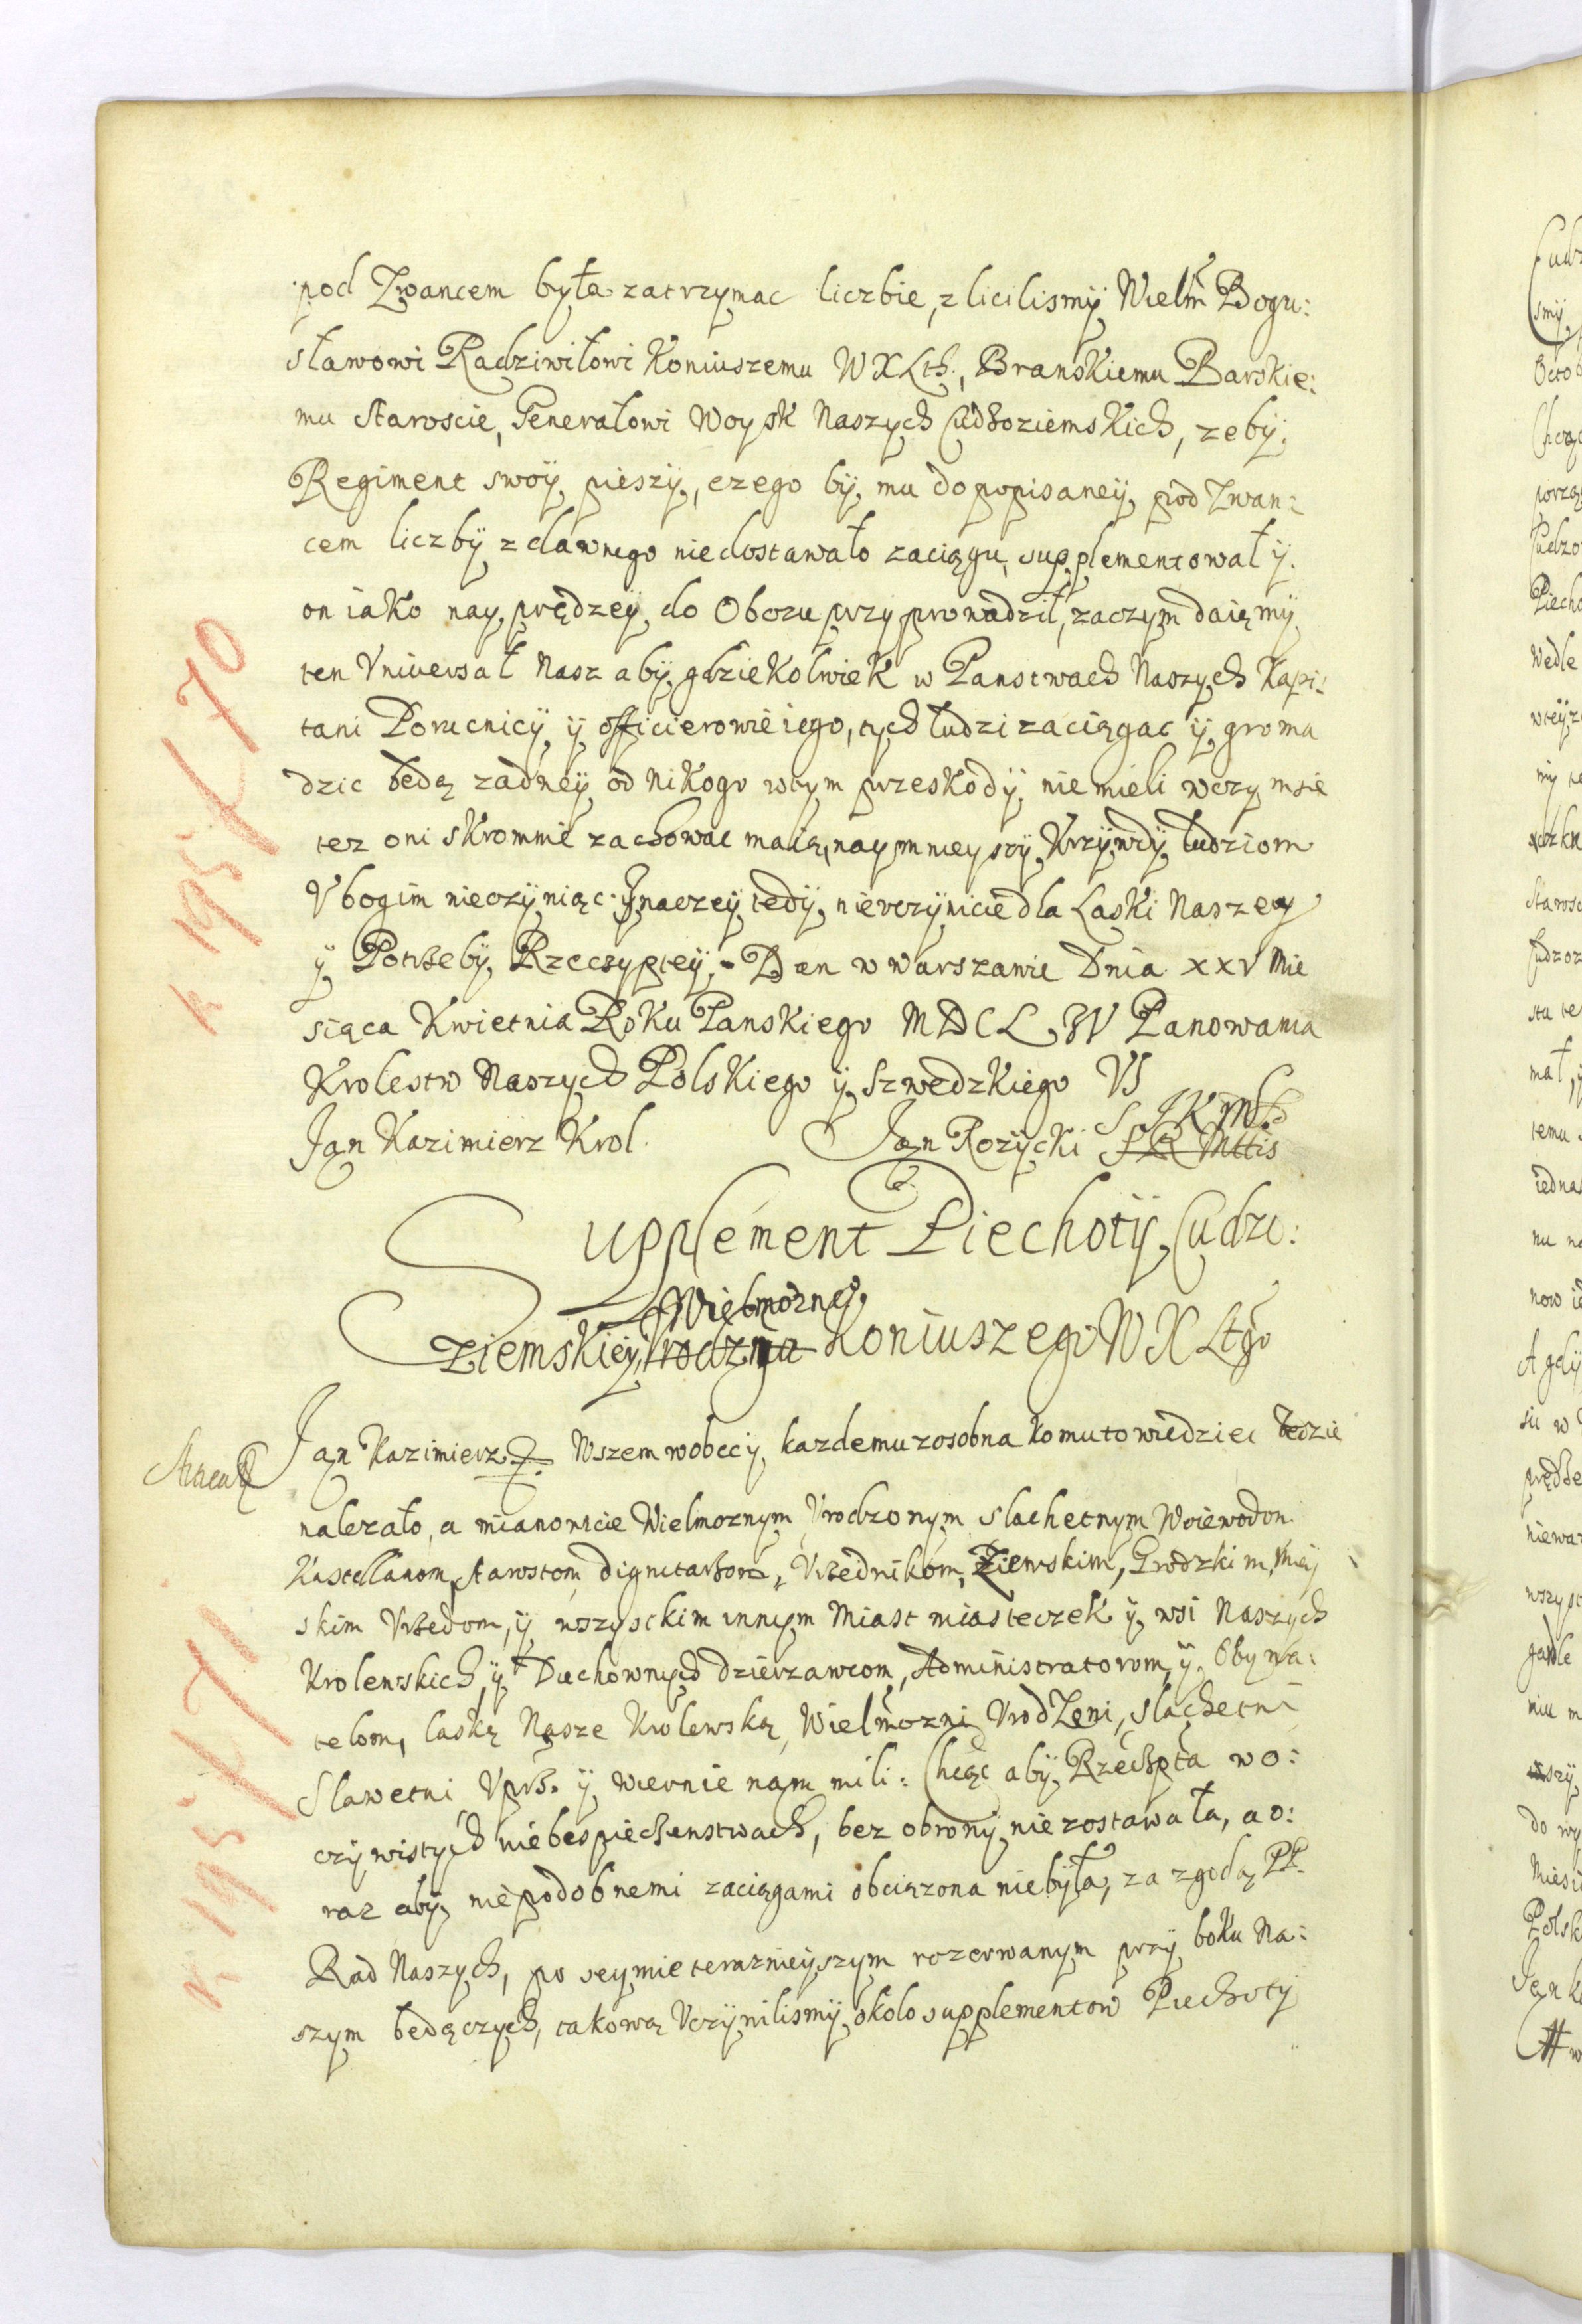 pod Zwancem była zatrzymac liczbie, zlicilismÿ Wielm Bogu:
sławowi Radziwiłowi Koniuszemu WXLth., Branskiemu Barskie:
mu Staroscie, Generałowi Woysk Naszych Cudzoziemskich, zebÿ
Regiment swoÿ pieszÿ, czego bÿ mu do popisaneÿ pod Zwan:
cem liczbÿ z dawnego niedostawało zaciągu, supplementował ÿ
on iako nayprędzeÿ do Obozu przyprowadził, zaczym daiemÿ
ten Vniversał Nasz abÿ gdziekolwiek w Panstwach Naszych Kapi:
tani Porucnicÿ ÿ officierowie iego, tych ludzi zaciągac ÿ groma
dzic będą zadneÿ od nikogo wtym przeskodÿ niemieli wczym sie
tez oni skromnie zachowac maią, naymnieyszÿ Krzÿwdÿ ludziom
Vbogim nieczÿniąc. Jnaczeÿ tedÿ nievczÿnicie dla Laski Naszey
ÿ Potrzebÿ Rzeczypteÿ. Dan w Warszawie Dnia XXV Mie
siąca Kwietnia Roku Panskiego MDCLIV Panowania
Krolestw Naszych Polskiego ÿ Szwedzkiego VI
Jan Kazimierz Krol. Jan Rozÿcki S JKMci
S R Mttis
Supplement Piechotÿ Cudzo:
Wielmoznego
ziemskieÿ Koniuszego W X Ltgo
Jan Kazimierz &. Wszem wobec ÿ kazdemu zosobna komu to wiedziec będzie
nalezało, a mianowicie Wielmoznym Vrodzonym slachetnym Woiewodom
Kastellanom, starostom, dignitarzom, Vrzednikom, Ziemskim, Grodzkim, Miey
skim Vrzędom, ÿ wszystkim innym Miast miasteczek ÿ wsi Naszych
Krolewskich, ÿ Duchownych dzierzawcom, Administratorom, ÿ Obywa:
telom, laskę Nasze Krolewską, Wielmozni Vrodzeni, slachetni
Slawetni Vprz. ÿ wiernie nam mili: Chcąc abÿ Rzeczpta wo:
czÿwistych niebespieczenstwach, bez obronÿ nie zostawała, a o:
raz abÿ niepodobnemi zaciągami obciązona niebyła, za zgodą PP.
Rad Naszych, po seymie terazniejszym rozerwanym przÿ boku Na:
szym będączych, takową Vczÿnilismÿ okolo supplementow Piechotÿ
k 195 f 70
k 195 f 71